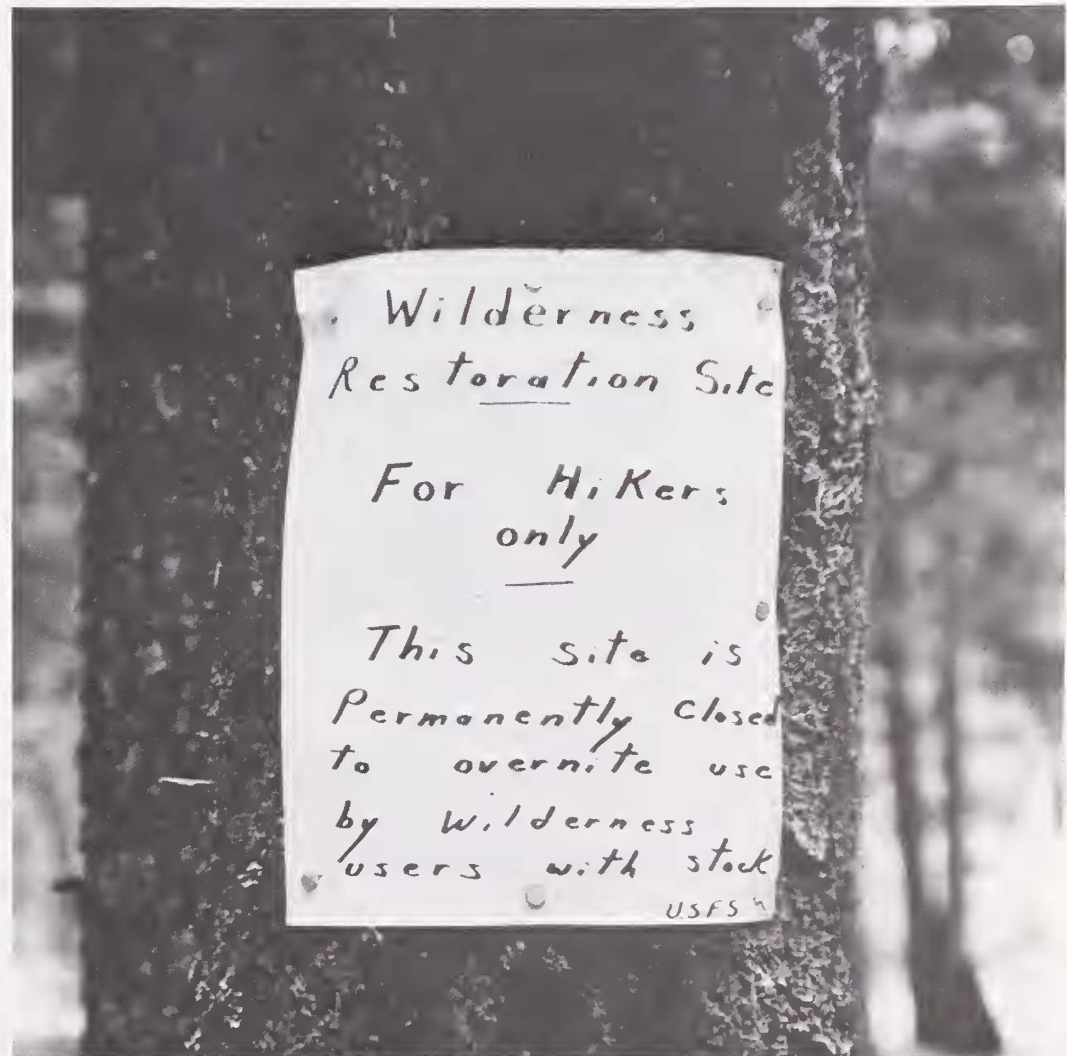 Wilderness
Restoration Site
For HiKers
only
This site is
Permanently Closed
to overnite use
by Wilderness
users with stock
USFS